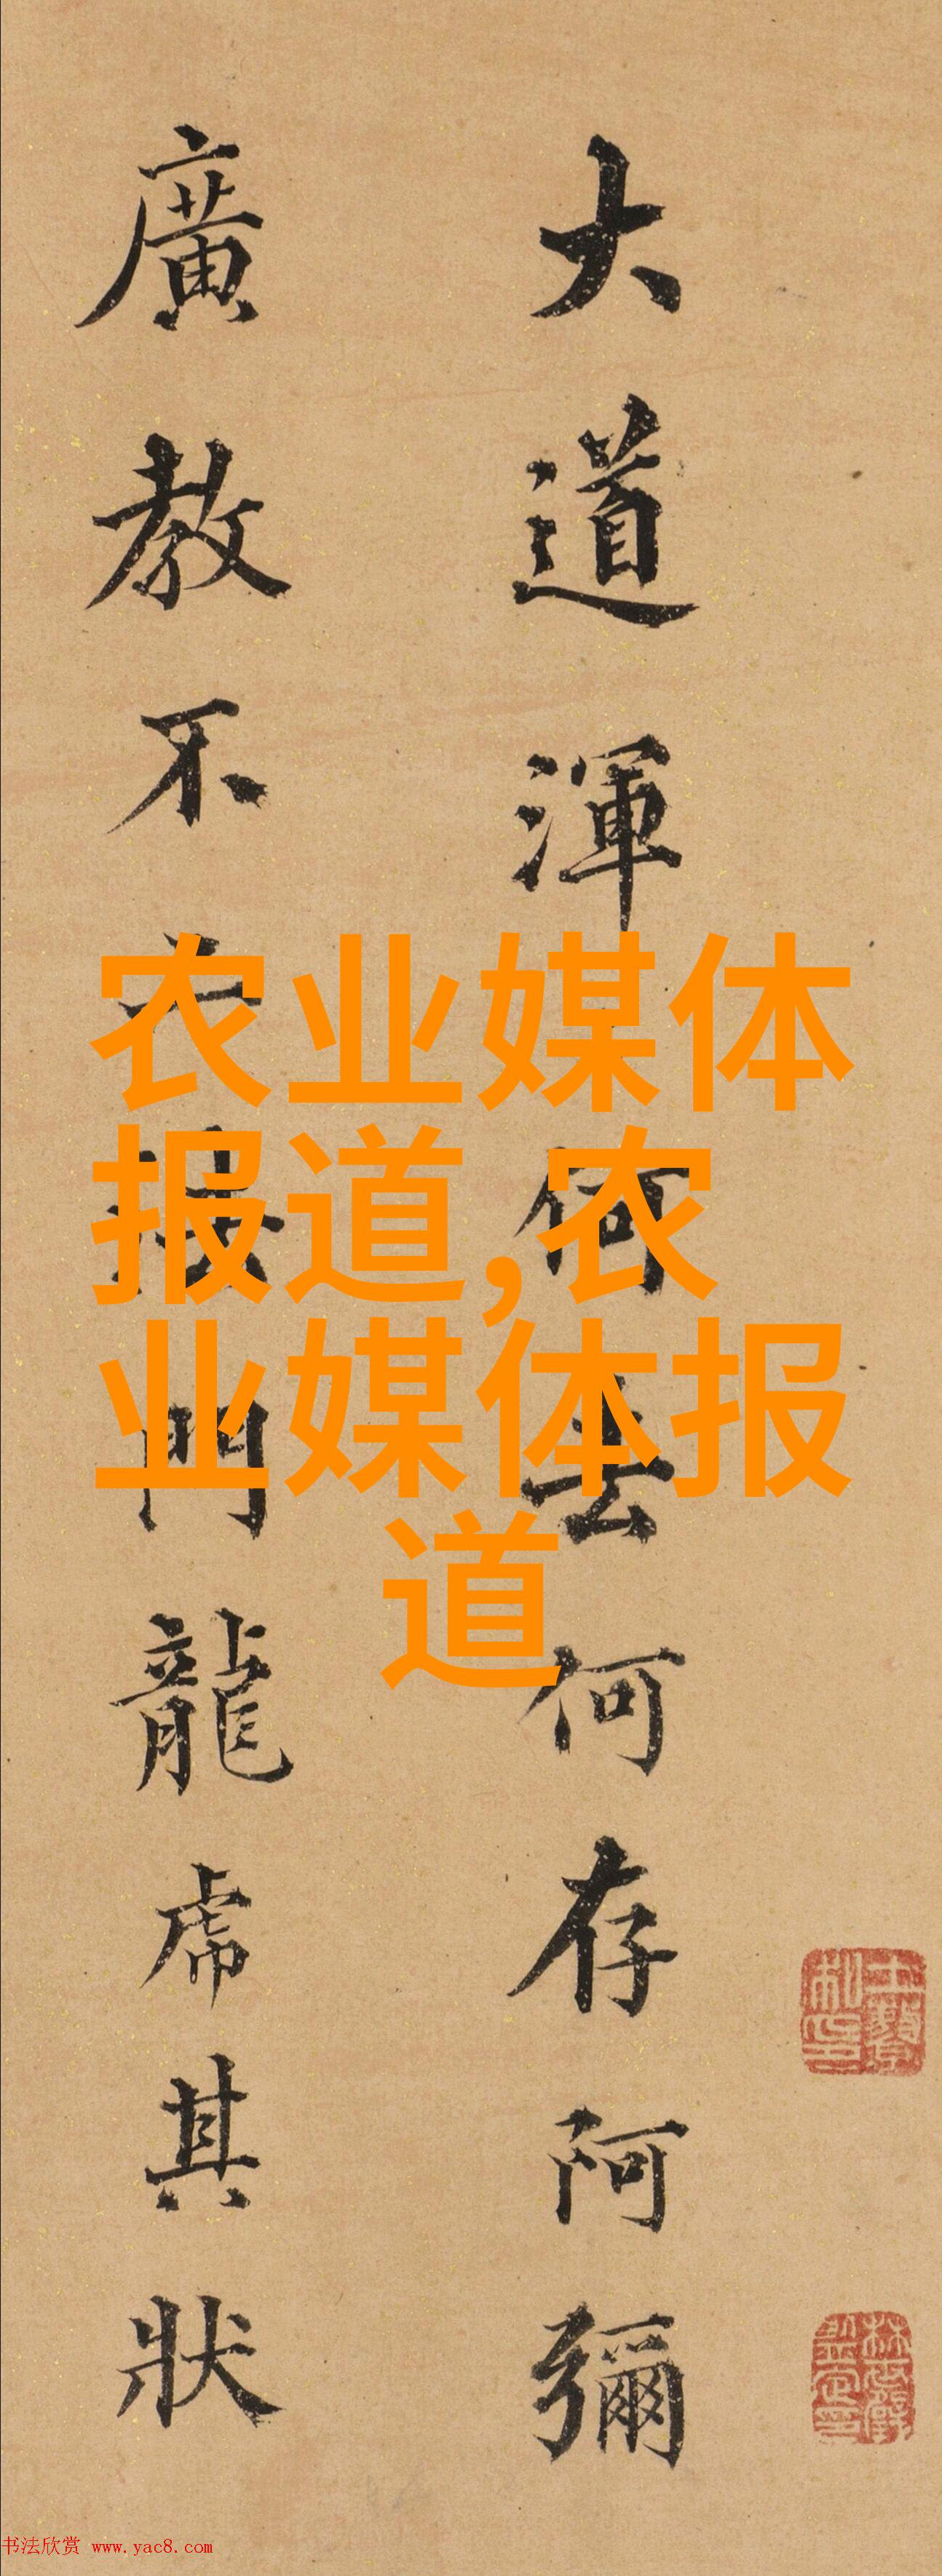 大道渾何去何存阿彌
廣教不門龍虎其狀
农业媒体
报道,农
业媒体报
道
书法欣赏 www.yac8.com